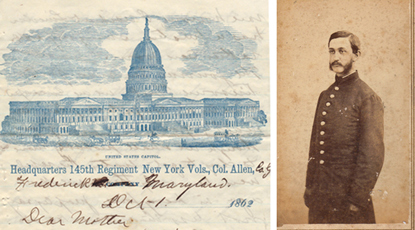 UNITED STATES CAPITOL.
Headquarters 145th Regiment New York Vols., Col. Allen,
Frederick Maryland.
Oct 1 1862
Dear Mother